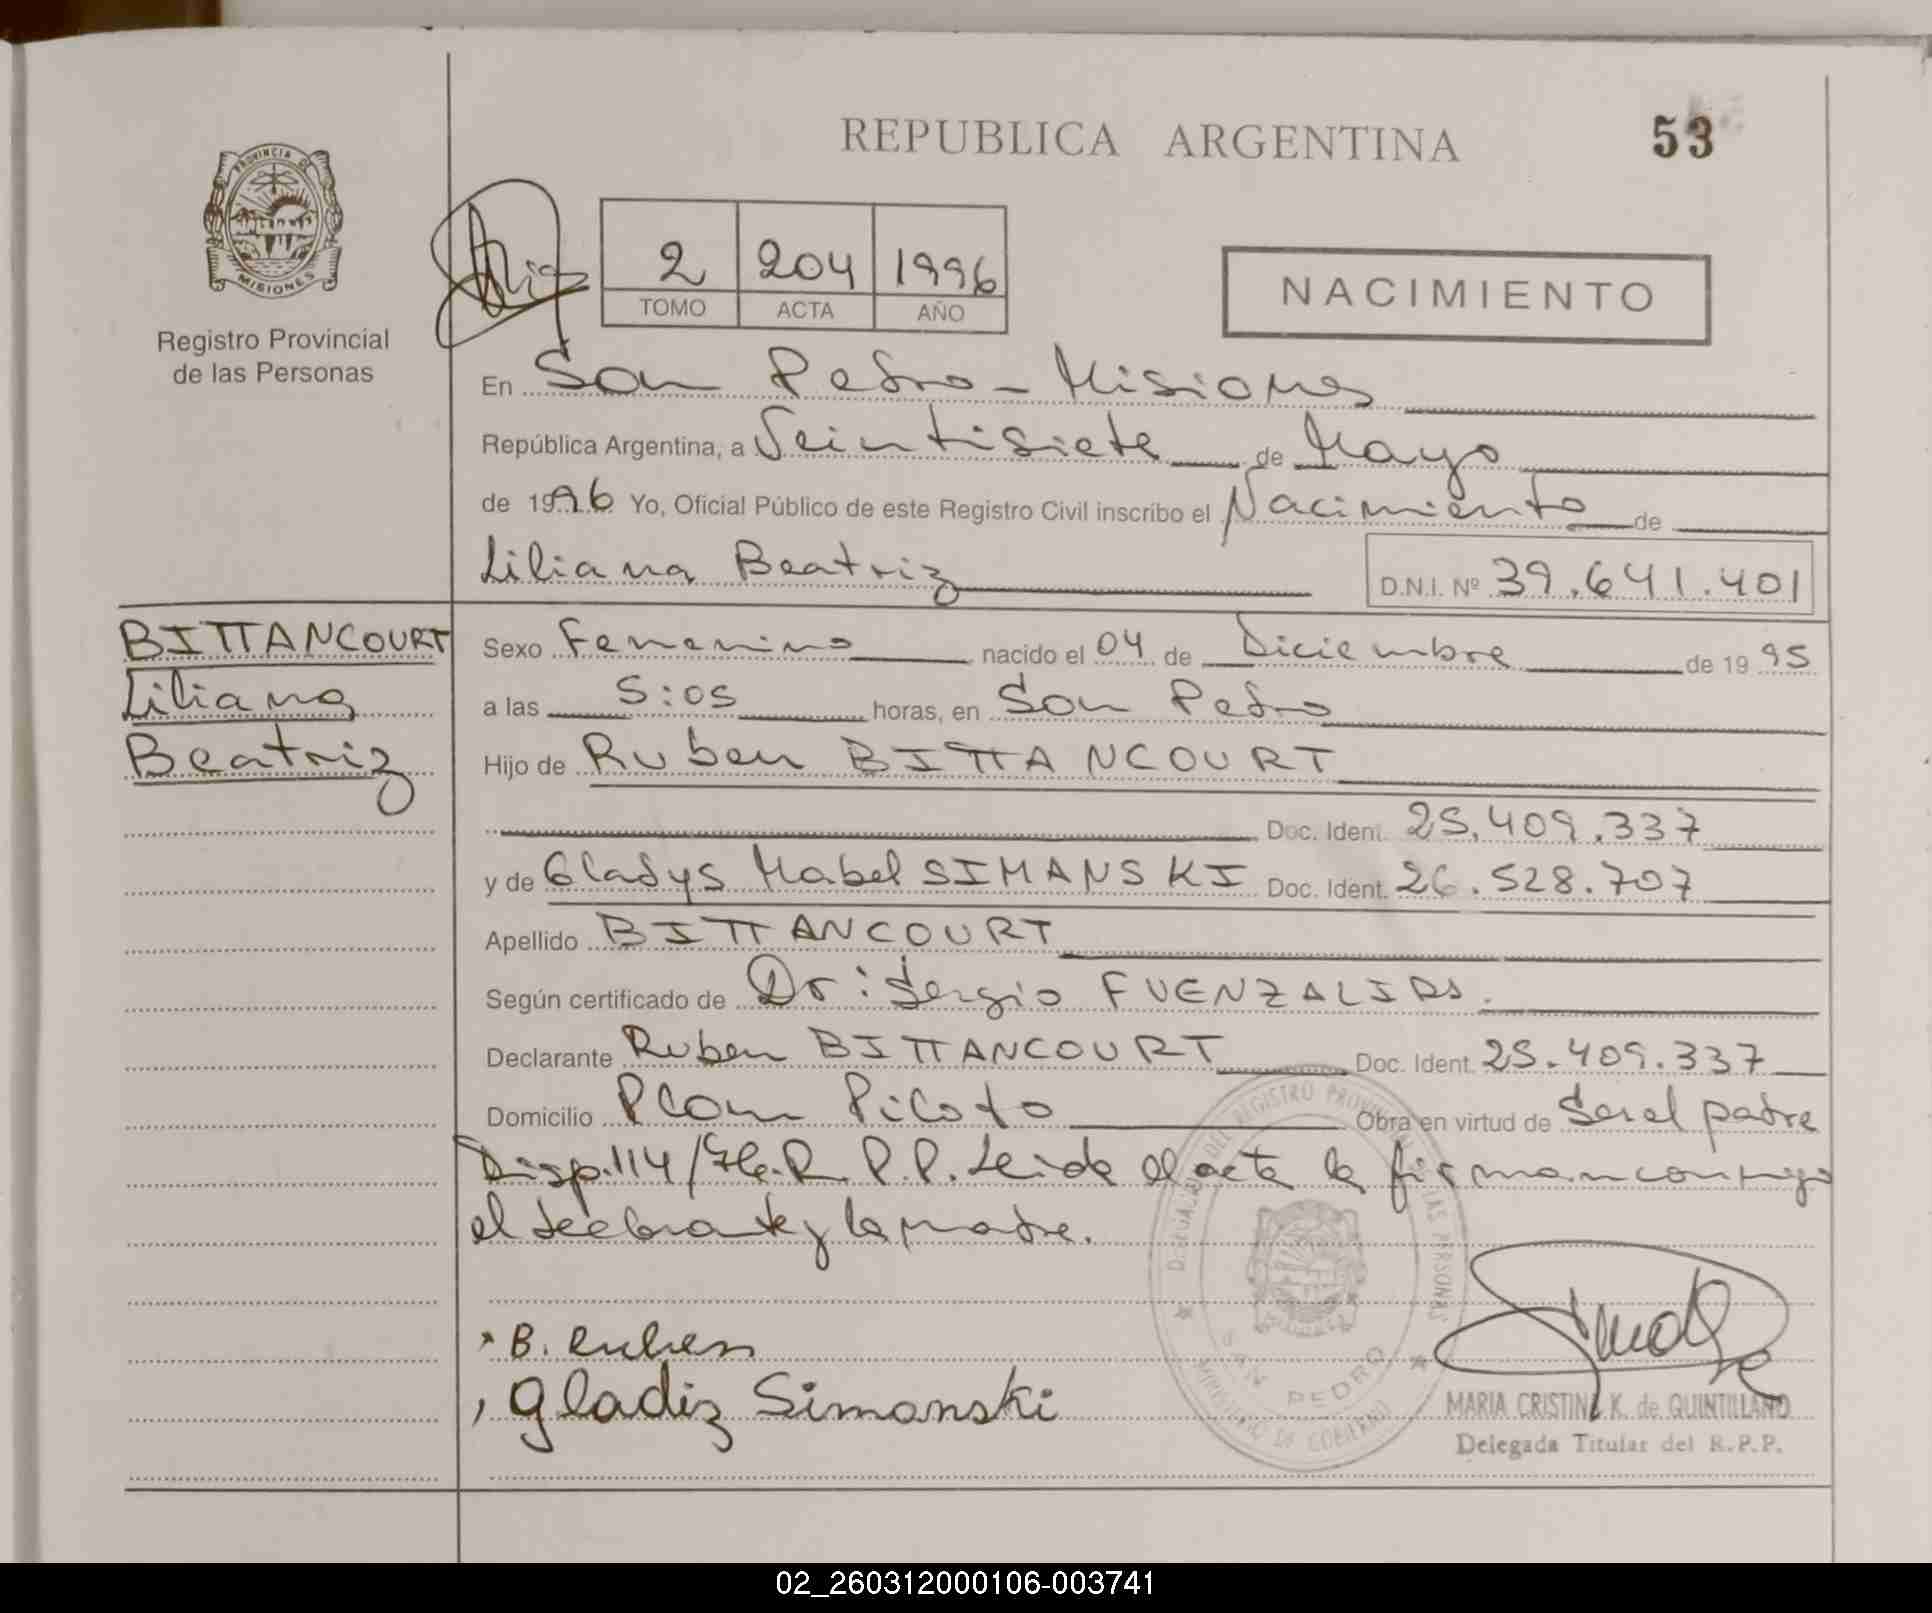 REPUBLICA ARGENTINA
53
PROVINCIA DE
MISIONES
Registro Provincial
de las Personas
2 204 1996
TOMO ACTA AÑO
NACIMIENTO
En San Pedro - Misiones
República Argentina, a Veintisiete de Mayo
de 1996 Yo, Oficial Público de este Registro Civil inscribo el Nacimiento de
Liliana Beatriz D.N.I. Nº 39.641.401
BITTANCOURT
Liliana
Beatriz
Sexo Femenino nacido el 04 de Diciembre de 1995
a las 5:05 horas, en San Pedro
Hijo de Ruben BITTANCOURT
Doc. Ident. 25.409.337
y de Gladys Mabel SIMANSKI Doc. Ident. 26.528.707
Apellido BITTANCOURT
Según certificado de Dr: Sergio FUENZALIDA.
Declarante Ruben BITTANCOURT Doc. Ident. 25.409.337
Domicilio Plan Piloto Obra en virtud de Ser el padre
Disp. 114/96. R. P. P. Leida el acta la firman conmigo
el declarante y la madre.
B. Ruben
Gladiz Simanski
DELEGACION DEL REGISTRO PROVINCIAL DE LAS PERSONAS
SAN PEDRO
MINISTERIO DE GOBIERNO
MARIA CRISTINA K. de QUINTILLANO
Delegada Titular del R.P.P.
02_260312000106-003741